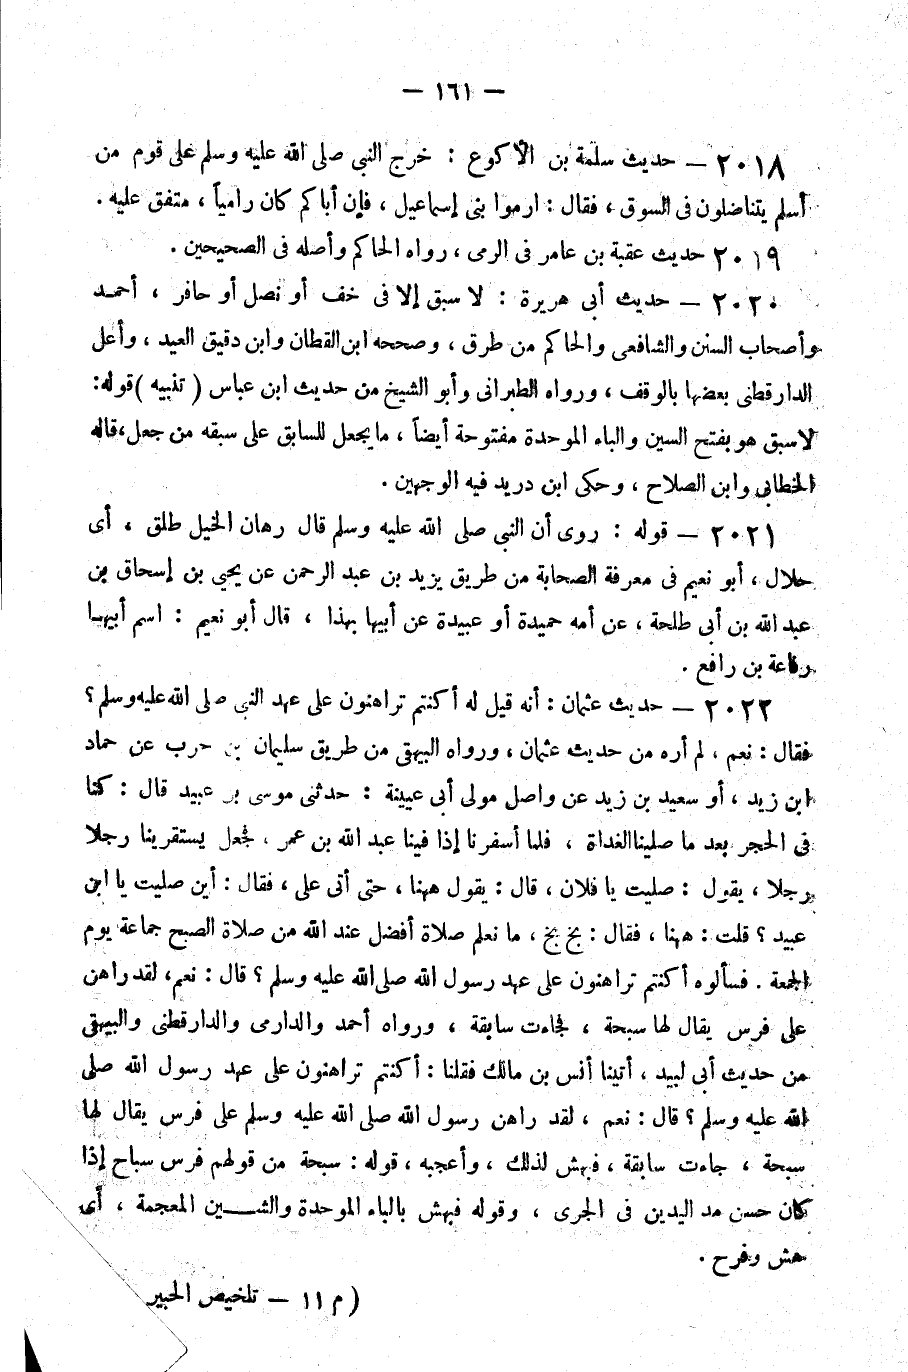 — ١٦١ —
٢٠١٨ — حديث سلمة بن الأكوع : خرج النبي صلى الله عليه وسلم على قوم من
أسلم يتناضلون فى السوق ، فقال : ارموا بنى إسماعيل ، فإن أباكم كان رامياً ، متفق عليه .
٢٠١٩ حديث عقبة بن عامر فى الرمى ، رواه الحاكم وأصله فى الصحيحين .
٢٠٢٠ — حديث أبى هريرة : لا سبق إلا فى خف أو نصل أو حافر ، أحمد
وأصحاب السنن والشافعى والحاكم من طرق ، وصححه ابن القطان وابن دقيق العيد ، وأعل
الدارقطنى بعضها بالوقف ، ورواه الطبرانى وأبو الشيخ من حديث ابن عباس ( تنبيه ) قوله :
لا سبق هو بفتح السين والباء الموحدة مفتوحة أيضاً ، ما يجعل للسابق على سبقه من جعل ، قاله
الخطابى وابن الصلاح ، وحكى ابن دريد فيه الوجهين .
٢٠٢١ — قوله : روى أن النبى صلى الله عليه وسلم قال رهان الخيل طلق ، أى
حلال ، أبو نعيم فى معرفة الصحابة من طريق يزيد بن عبد الرحمن عن يحيى بن إسحاق بن
عبد الله بن أبى طلحة ، عن أمه حميدة أو عبيدة عن أبيها بهذا ، قال أبو نعيم : اسم أبيها
رفاعة بن رافع .
٢٠٢٢ — حديث عثمان : أنه قيل له أكنتم تراهنون على عهد النبى صلى الله عليه وسلم ؟
فقال : نعم ، لم أره من حديث عثمان ، ورواه البيهقى من طريق سليمان بن حرب عن حماد
ابن زيد ، أو سعيد بن زيد عن واصل مولى أبى عيينة : حدثنى موسى بن عبيد قال : كنا
فى الحجر بعد ما صلينا الغداة ، فلما أسفرنا إذا فينا عبد الله بن عمر ، فجعل يستقرينا رجلا
رجلا ، يقول : صليت يا فلان ، قال : يقول ههنا ، حتى أتى على ، فقال : أين صليت يا ابن
عبيد ؟ قلت : ههنا ، فقال : بخ بخ ، ما نعلم صلاة أفضل عند الله من صلاة الصبح جماعة يوم
الجمعة . فسألوه أكنتم تراهنون على عهد رسول الله صلى الله عليه وسلم ؟ قال : نعم ، لقد راهن
على فرس يقال لها سبحة ، فجاءت سابقة ، ورواه أحمد والدارمى والدارقطنى والبيهقى
من حديث أبى لبيد ، أتينا أنس بن مالك فقلنا : أكنتم تراهنون على عهد رسول الله صلى
الله عليه وسلم ؟ قال : نعم ، لقد راهن رسول الله صلى الله عليه وسلم على فرس يقال لها
سبحة ، جاءت سابقة ، فهش لذلك ، وأعجبه ، قوله : سبحة من قولهم فرس سباح إذا
كان حسن مد اليدين فى الجرى ، وقوله فبهش بالباء الموحدة والشين المعجمة ، أى
هش وفرح .
( م ١١ — تلخيص الحبير